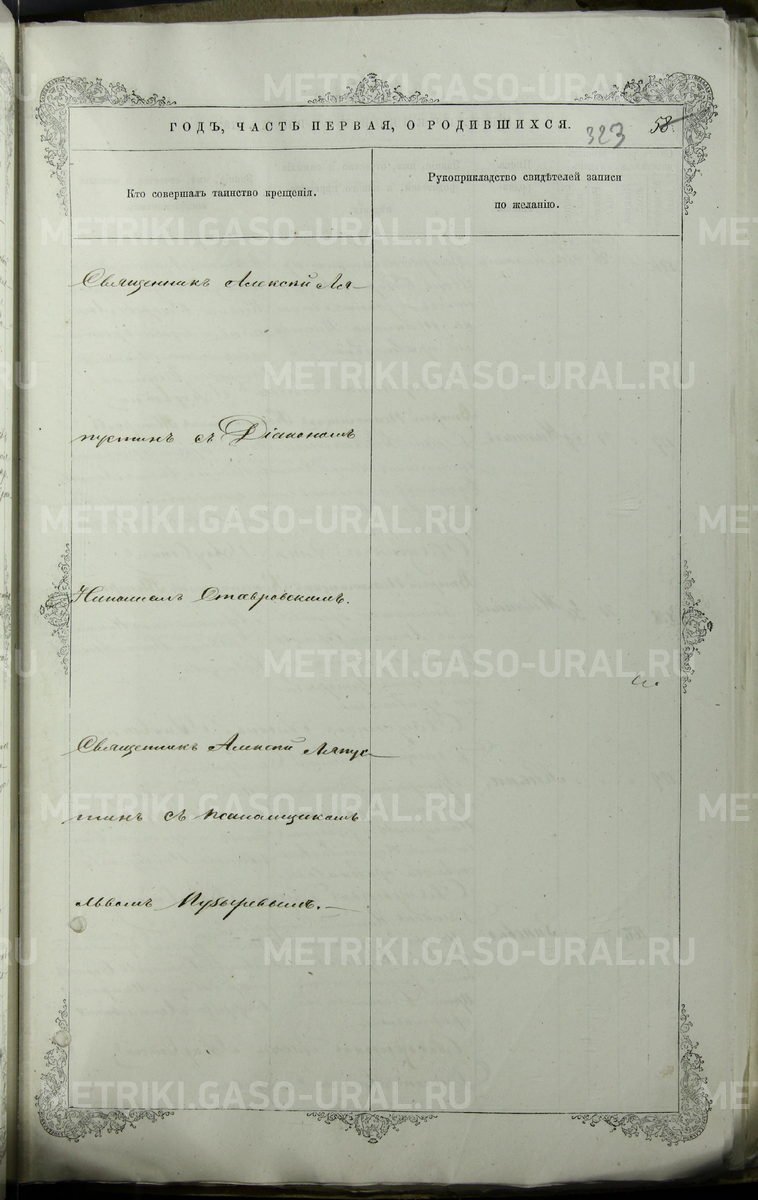 ГОДЪ, ЧАСТЬ ПЕРВАЯ, О РОДИВШИХСЯ. 323 58
Кто совершалъ таинство крещенія.
Рукоприкладство свидѣтелей записи
по желанію.
Священникъ Алексѣй Ля-
пустинъ съ Діакономъ
Ставровскимъ.
Священникъ Алексѣй Ляпус-
тинъ съ псаломщикомъ
Львомъ Пузыревымъ.—
METRIKI.GASO-URAL.RU